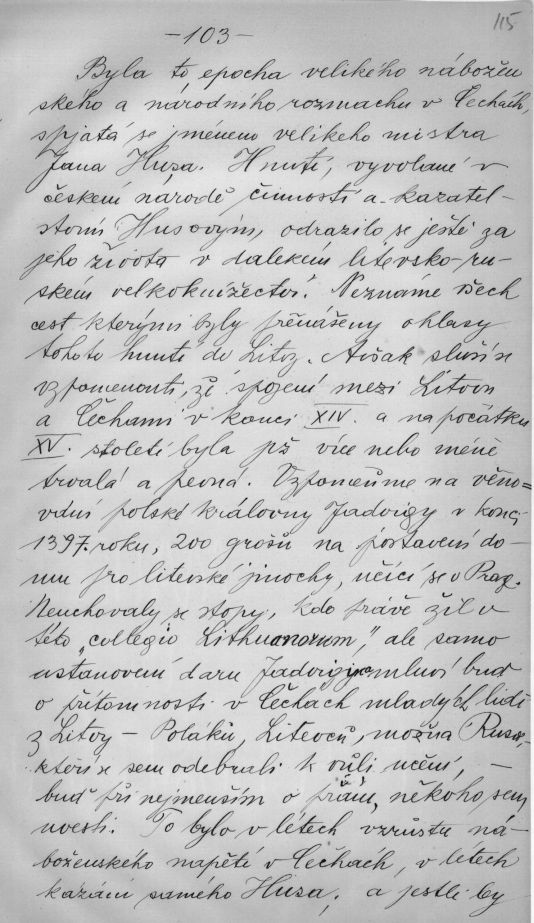 115
-103-
Byla to epocha velikého nábožen
ského a národního rozmachu v Čechách,
spjatá se jménem velikého mistra
Jana Husa. Hnutí, vyvolané v
českém národě činností a kazatel-
stvím Husovým, odrazilo se ještě za
jeho života v dalekém litevsko-ru-
ském velkoknížectví. Neznáme všech
cest kterými byly přenášeny ohlasy
tohoto hnutí do Litvy. Avšak sluší se
vzpomenouti, že spojení mezi Litvou
a Čechami v konci XIV. a na počátku
XV. století byla již více nebo méně
trvalá a pevná. Vzpomeňme na věno=
vání polské královny Jadvigy v konci
1397. roku, 200 grošů na postavení do-
mu pro litevské jinochy, učící se v Praze.
Neuchovaly se stopy, kdo právě žil v
této "collegio Lithuanorum", ale samo
ustanovení daru Jadvigina mluví buď
o přítomnosti v Čechách mladých lidí
z Litvy - Poláků, Litevců, možna Rusů,
kteří se sem odebrali k vůli učení, -
buď při nejmenším o přání, někoho sem
uvésti. To bylo v létech vzrůstu ná-
boženského napětí v Čechách, v létech
kázání samého Husa; a jestli by